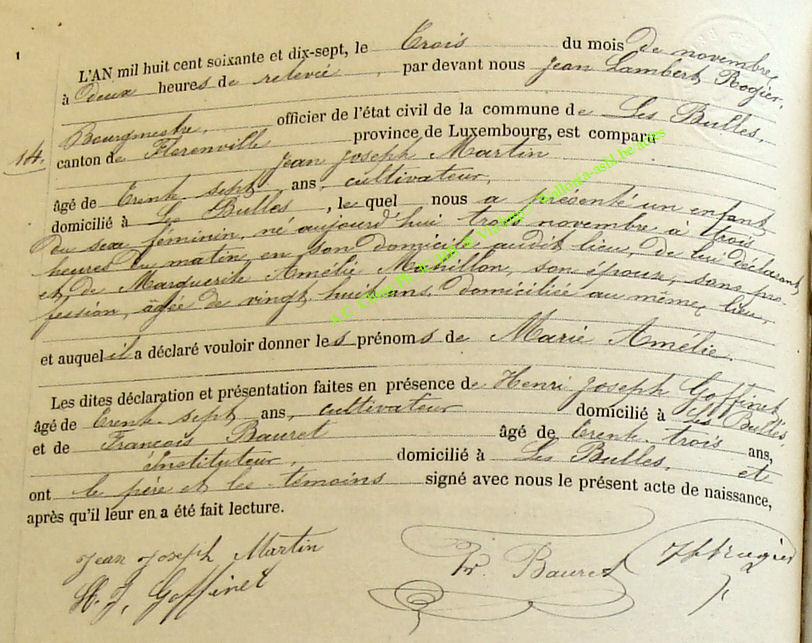 L'AN mil huit cent soixante et dix-sept, le Trois du mois de novembre,
à Deux heures de relevée, par devant nous Jean Lambert Rogier,
Bourgmestre, officier de l'état civil de la commune de Les Bulles,
14. canton de Florenville province de Luxembourg, est comparu
Jean Joseph Martin
âgé de Trente sept ans, cultivateur,
domicilié à Les Bulles, le quel nous a présenté un enfant
du sexe féminin, né aujourd'hui trois novembre à trois
heures du matin, en son domicile audit lieu, de lui déclarant
et de Marguerite Amélie Mathillon, son épouse, sans pro-
fession, âgée de vingt huit ans, domiciliée au même lieu,
et auquel il a déclaré vouloir donner les prénoms de Marie Amélie.
Les dites déclaration et présentation faites en présence de Henri Joseph Goffinet
âgé de Trente sept ans, cultivateur domicilié à Les Bulles
et de François Bauret âgé de trente trois ans,
instituteur, domicilié à Les Bulles, et
ont le père et les témoins signé avec nous le présent acte de naissance,
après qu'il leur en a été fait lecture.
Jean Joseph Martin
H. J. Goffinet
Fr. Bauret